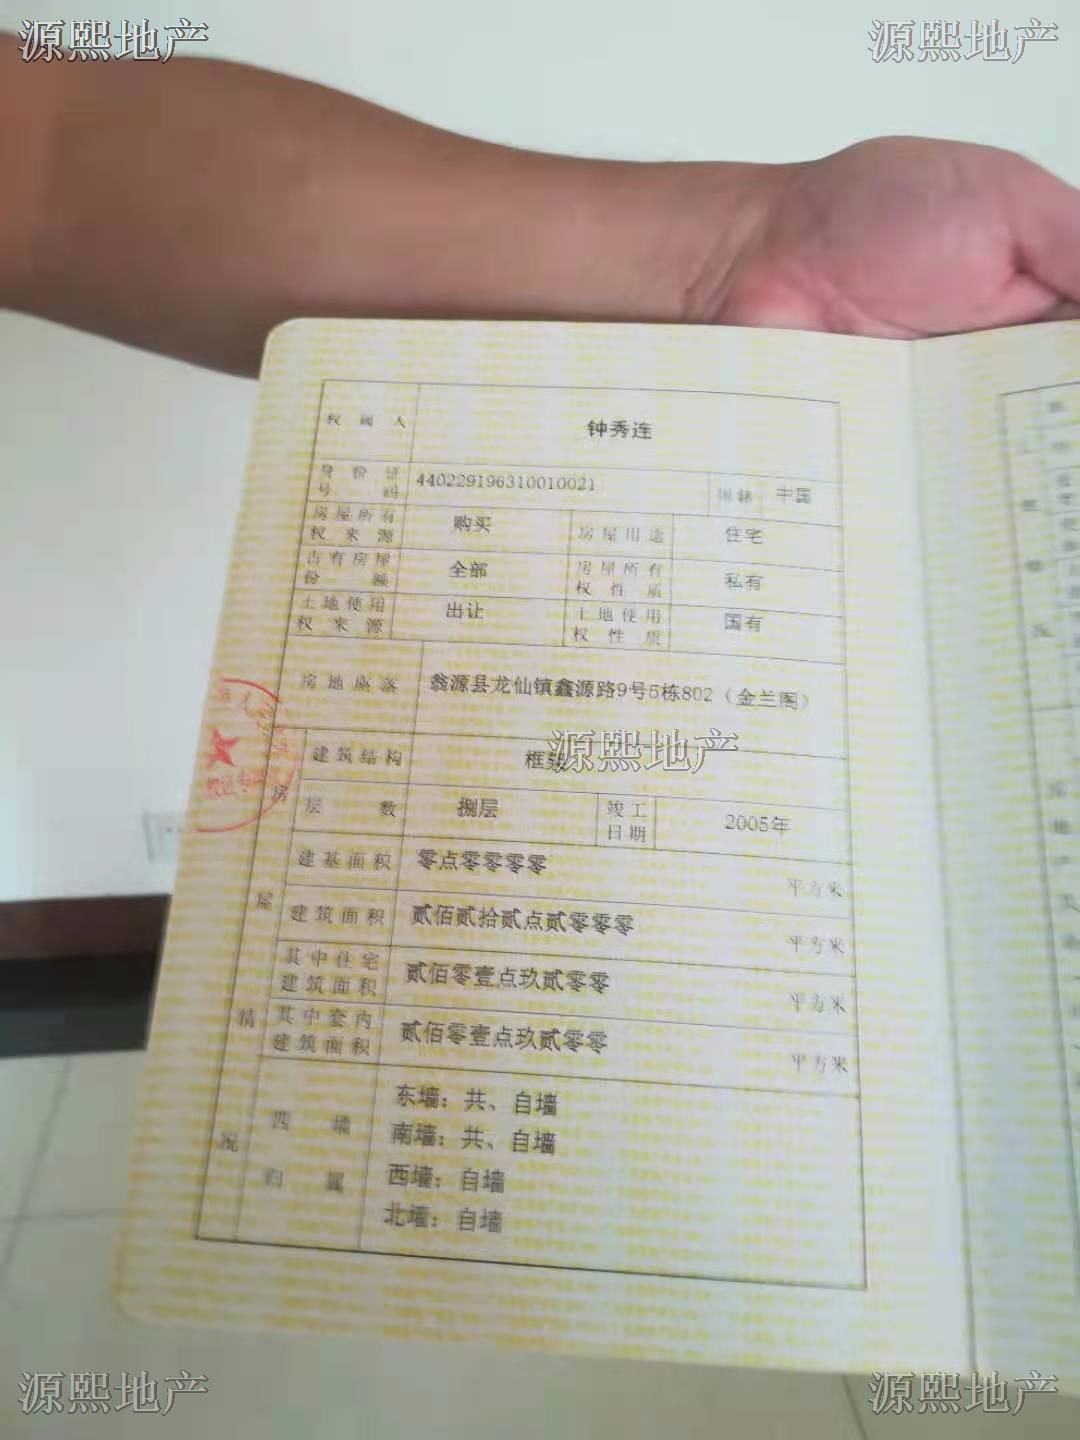 源熙地产
源熙地产
权属人 钟秀连
身份证号码 440229196310010021 国籍 中国
房屋所有权来源 购买 房屋用途 住宅
占有房屋份额 全部 房屋所有权性质 私有
土地使用权来源 出让 土地使用权性质 国有
房地座落 翁源县龙仙镇鑫源路9号5栋802（金兰阁）
源熙地产
房屋情况
建筑结构 框架
层数 捌层 竣工日期 2005年
建基面积 零点零零零零 平方米
建筑面积 贰佰贰拾贰点贰零零零 平方米
其中住宅建筑面积 贰佰零壹点玖贰零零 平方米
其中套内建筑面积 贰佰零壹点玖贰零零 平方米
四墙归属
东墙：共、自墙
南墙：共、自墙
西墙：自墙
北墙：自墙
源熙地产
源熙地产